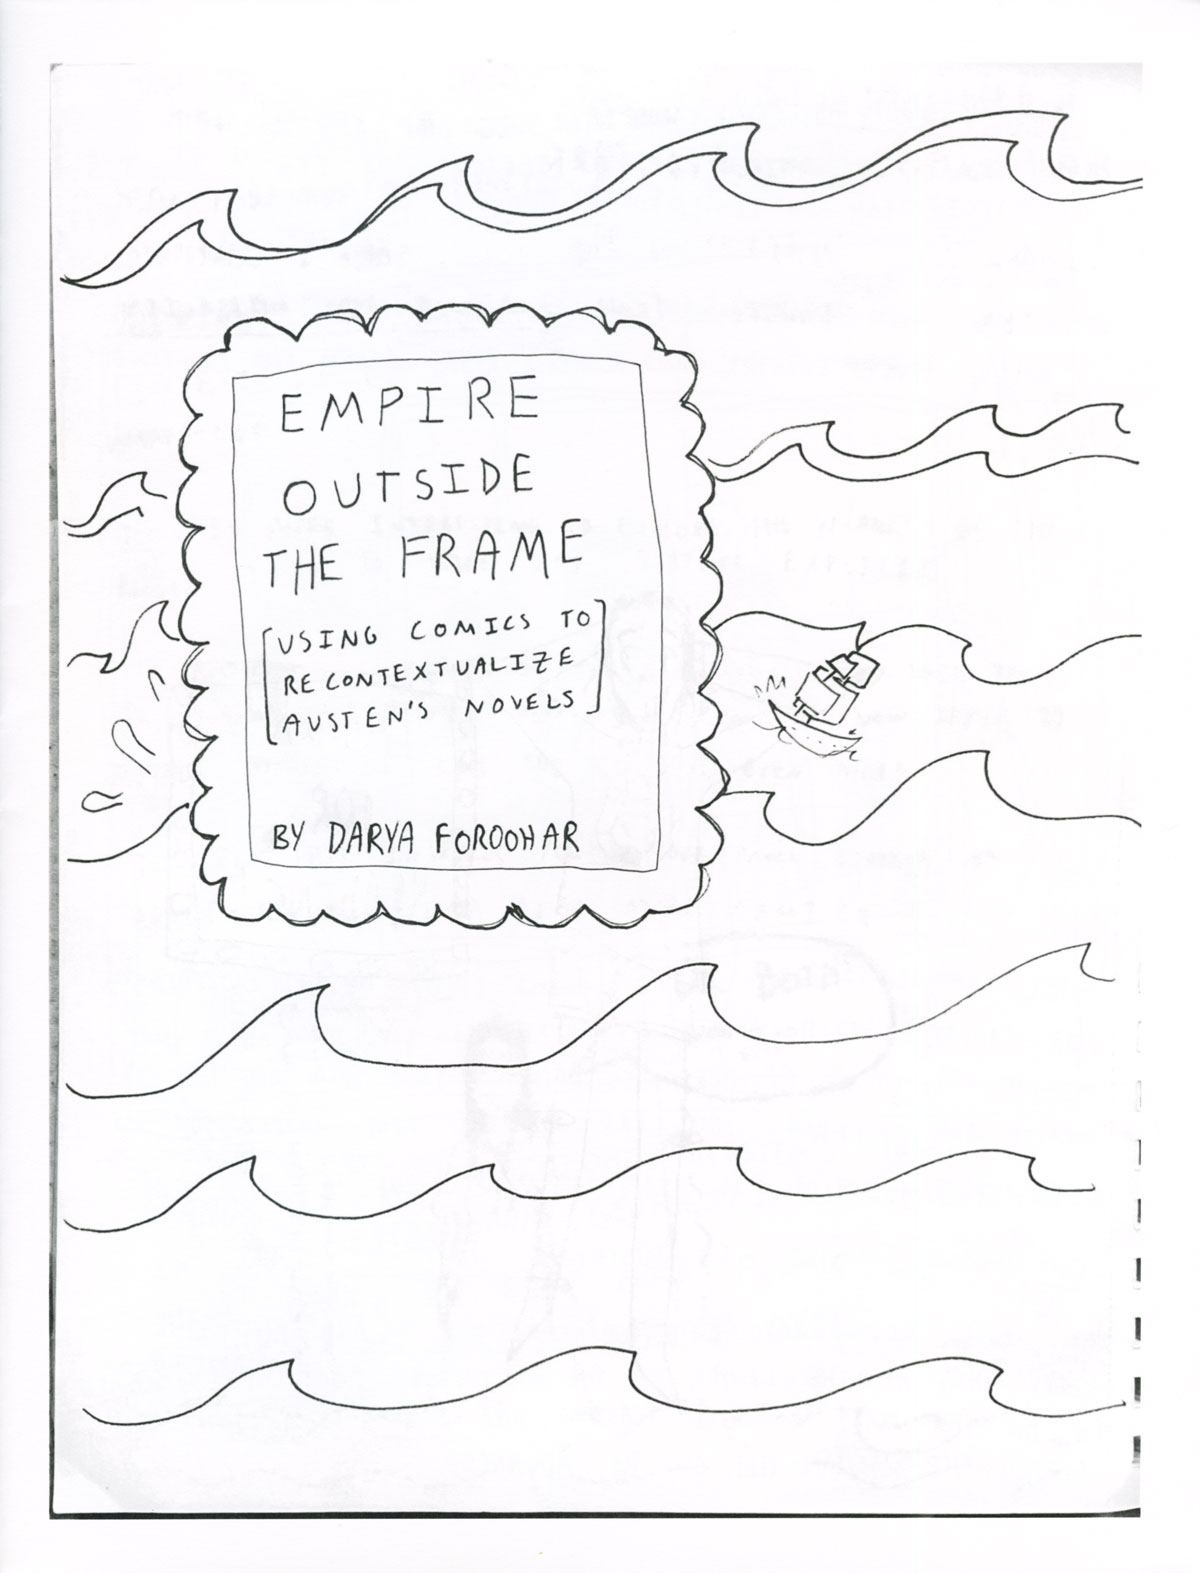 EMPIRE
OUTSIDE
THE FRAME
[USING COMICS TO
RECONTEXTUALIZE
AUSTEN'S NOVELS]
BY DARYA FOROOHAR